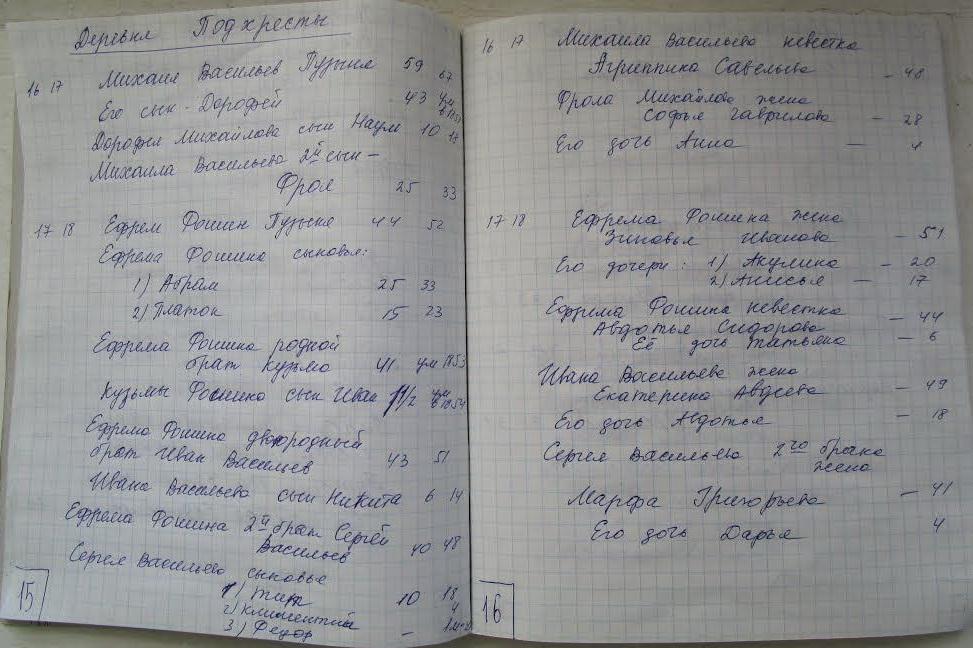 Деревня Подхресты
16 17 Михаил Васильев Пузыня 59 67
Его сын - Дорофей 43 ум в 1851
Дорофея Михайлова сын Наум 10 18
Михаила Васильева 2й сын -
Фрол 25 33
17 18 Ефрем Фошин Пузыня 44 52
Ефрема Фошина сыновья:
1) Абрам 25 33
2) Платон 15 23
Ефрема Фошина родной
брат Кузьма 41 ум 1853
Кузьмы Фошина сын Иван 1 1/2 ум в 1854
Ефрема Фошина двоюродный
брат Иван Васильев 43 51
Ивана Васильева сын Никита 6 14
Ефрема Фошина 2й брат Сергей
Васильев 40 48
Сергея Васильева сыновья
1) Тит 10 18
2) Климентий 4
3) Федор —
15
16 17 Михаила Васильева невестка
Агриппина Савельева - 48
Фрола Михайлова жена
Софья Гаврилова - 28
Его дочь Анна — 4
17 18 Ефрема Фошина жена
Зиновья Иванова - 51
Его дочери: 1) Акулина - 20
2) Анисья - 17
Ефрема Фошина невестка
Авдотья Сидорова - 44
Её дочь Татьяна - 6
Ивана Васильева жена
Екатерина Авдеева - 49
Его дочь Авдотья - 18
Сергея Васильева 2го брака
жена
Марфа Григорьева - 41
Его дочь Дарья 4
16